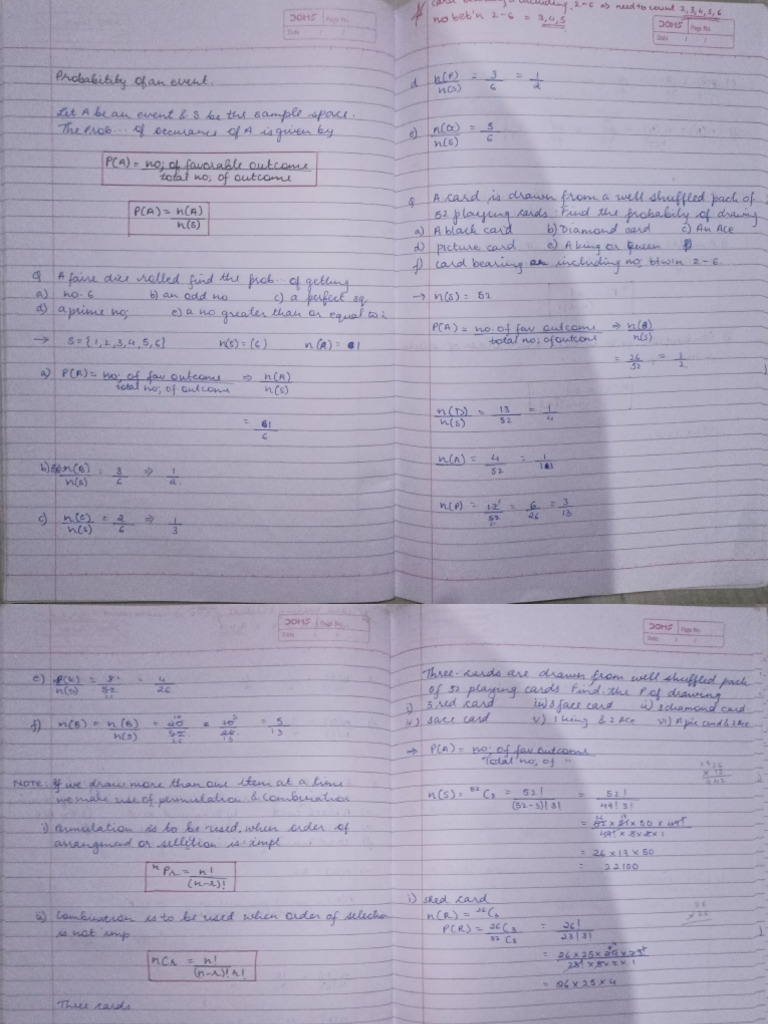 DOMS Page No.
Date / /
Probability of an event.
Let A be an event & S be the sample space.
The Prob... of occurance of A is given by
P(A) = no; of favorable outcome
total no; of outcome
P(A) = n(A)
n(S)
Q A faire dice rolled find the prob... of getting
a) no. 6 b) an odd no c) a perfect sq
d) a prime no; e) a no greater than or equal to
→ S = {1, 2, 3, 4, 5, 6} n(S) = (6) n(A) = 1
a) P(A) = no; of fav outcome ⇒ n(A)
total no; of outcome n(S)
= 1
6
b) n(B) = 3 ⇒ 1
n(S) 6 2
c) n(C) = 2 ⇒ 1
n(S) 6 3
including 2-6 ⇒ need to count 2,3,4,5,6
no bet'n 2-6 = 3,4,5
DOMS Page No.
Date / /
d n(P) = 3 = 1
n(S) 6 2
e) = 5
n(S) 6
Q A card is drawn from a well shuffled pack of
52 playing cards. Find the probabily of drawing
a) A black card b) Diamond card c) An Ace
d) picture card e) A king or Queen
f) card bearing including no; btwin 2-6.
→ n(S) = 52
P(A) = no. of fav outcome ⇒ n(B)
total no; of outcome n(S)
= 26 = 1
52 2
n(D) = 13 = 1
n(S) 52 4
n(A) = 4 = 1
52
n(P) = 12 = 6 = 3
52 26 13
DOMS Page No.
Date / /
e) = 8 = 4
n(S) 52 26
f) n(B) = n(B) = 20 = 10 = 5
n(S) 52 26 13
NOTE: If we draw more than one item at a time
we make use of permutation & Combination
i) Permutation is to be used, when order of
arrangemed or selition is impt
nPr = n!
(n-r)!
ii) Combination is to be used when order of selection
is not imp
nCr = n!
(n-r)! r!
Three cards
DOMS Page No.
Date / /
Three cards are drawn from well shuffled pack
of 52 playing cards. Find the P of drawing
i) 3 red card ii) 3 face card iii) 3 diamond card
iv) 3 ace card v) 1 king & 2 Ace vi)
→ P(A) = no; of fav outcome
Total no; of "
n(S) = 52C3 = 52! = 52!
(52-3)! 3! 49! 3!
= 52 × 51 × 50 × 49!
49! × 3 × 2 × 1
= 26 × 17 × 50
= 22100
i) 3 red card
n(R) = 26C3
P(R) = 26C3 = 26!
52C3 23! 3!
= 26 × 25 × 24 × 23!
23! × 3 × 2 × 1
= 26 × 25 × 4